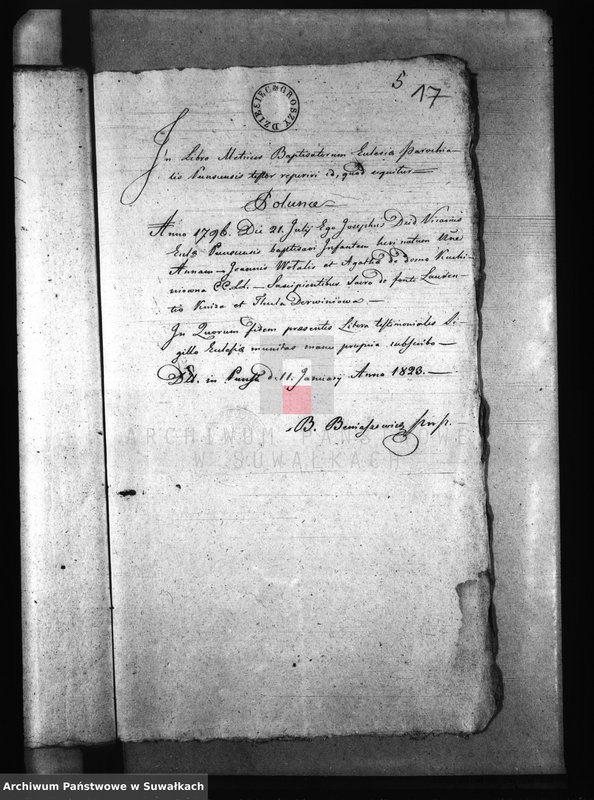 5 17
DZIESIĘĆ GROSZY
In Libro Metrices Baptisatorum Eclesiæ Parochia-
lis Punsensis testor reperiri id, quod sequitur
Polunce
Anno 1796 Die 21. Julij Ego Josephus Vicarius
Eccl. Punsensis baptisavi Infantem heri natum
Annam Joannis Wotalis et Agathæ de domo
CC. LL. Suscipientibus Sacro de fonte Lauren-
tio et Thecla Derwiniowa
In Quorum fidem præsentes Literas testimoniales Si-
gillo Eclesiæ munitas manu propria subscribo
Dtt. in Punsk d. 11. January Anno 1823.
B. Beniaszewicz
ARCHIWUM PAŃSTWOWE
W SUWAŁKACH
Archiwum Państwowe w Suwałkach